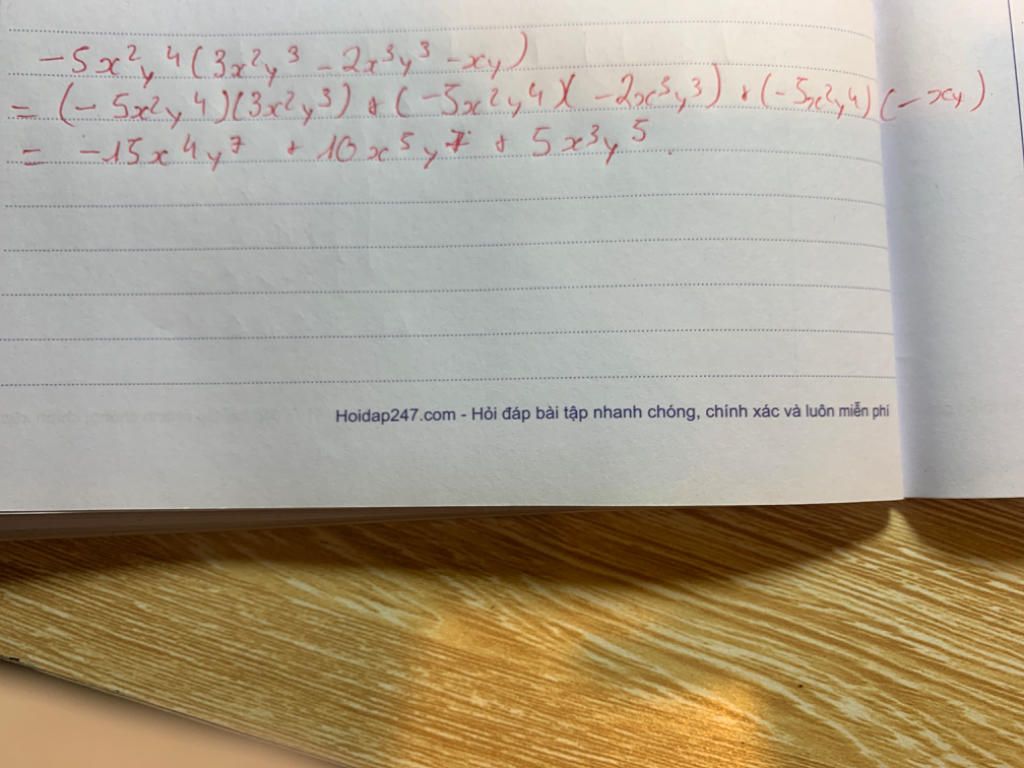 -5x²y⁴(3x²y³ - 2x³y³ - xy)
= (-5x²y⁴)(3x²y³) + (-5x²y⁴)(-2x³y³) + (-5x²y⁴)(-xy)
= -15x⁴y⁷ + 10x⁵y⁷ + 5x³y⁵.
Hoidap247.com - Hỏi đáp bài tập nhanh chóng, chính xác và luôn miễn phí